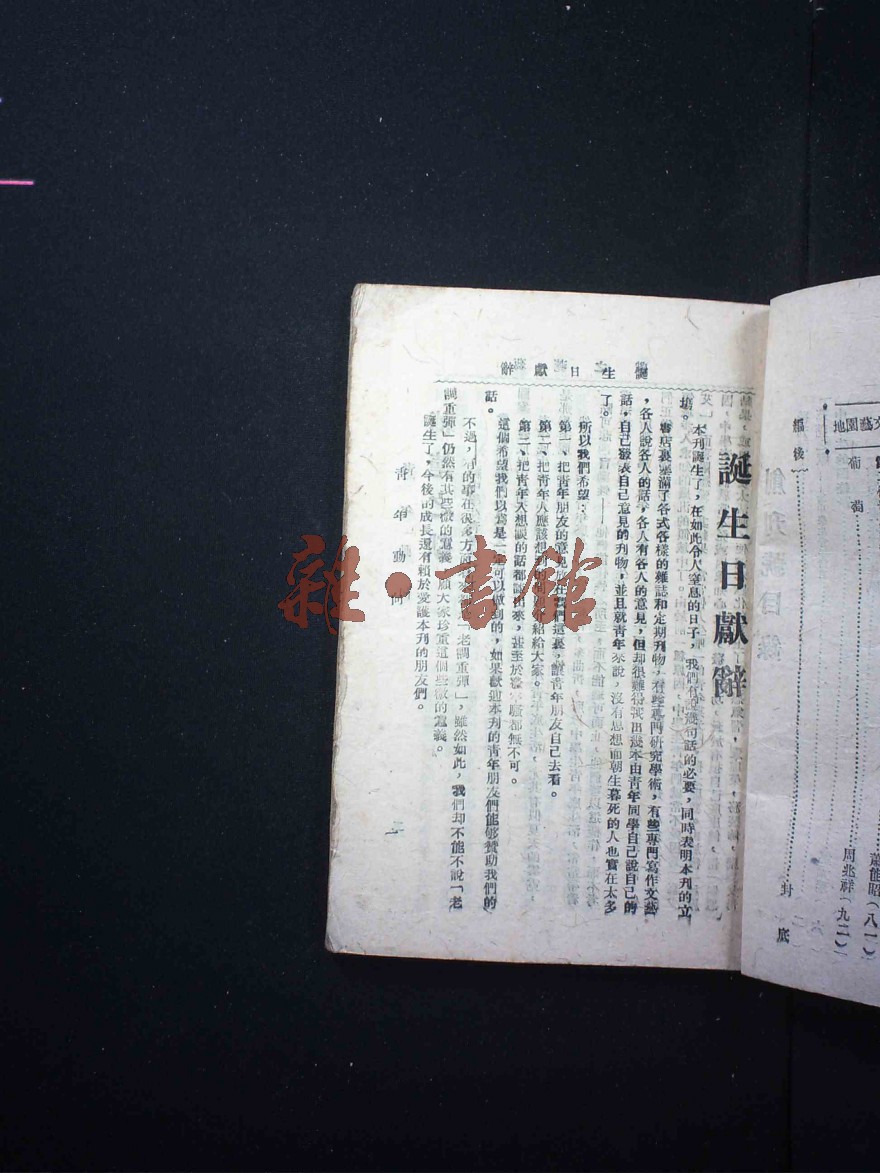 文藝園地
葡 萄
蕭能昭(八一)
周兆祥(九二)
編後
封 底
誕生日獻辭
誕生日獻辭
本刊誕生了,在如此令人窒息的日子,我們有說幾句話的必要,同時表明本刊的立
場。
書店裏塞滿了各式各樣的雜誌和定期刊物,有些專門研究學術,有些專門寫作文藝
,各人說各人的話,各人有各人的意見,但却很難得找出幾本由青年同學自己說自己的
話,自己發表自己意見的刊物,並且就青年來說,沒有思想而朝生暮死的人也實在太多
了。
所以我們希望:
第一、把青年朋友的意見,在我們這裏,讓青年朋友自己去看。
第二、把青年人應該想到的問題介紹給大家。
第三、把青年人想說的話都說出來,甚至於
都無不可。
這個希望我們以爲是一定可以做到的,如果歡迎本刊的青年朋友們能够贊助我們的
話。
不過,有的事在很多方面
「老調重彈」,雖然如此,我們却不能不說「老
調重彈」仍然有其些微的意義,願大家珍重這個些微的意義。
誕生了,今後的成長還有賴於愛護本刊的朋友們。
青年動向
雜·書館